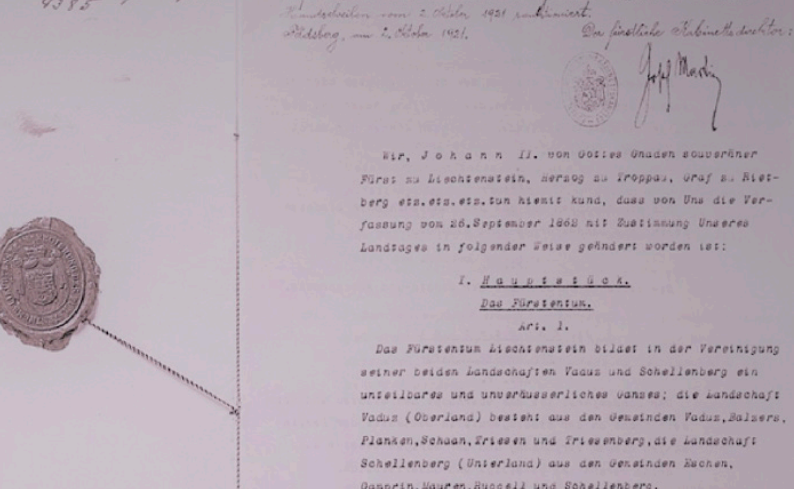 4385
Handschreiben vom 2. Oktober 1921 sanktioniert.
Feldsberg, am 2. Oktober 1921.
Der fürstliche Kabinettsdirektor:
Josef Martin
Wir, Johann II. von Gottes Gnaden souveräner
Fürst zu Liechtenstein, Herzog zu Troppau, Graf zu Riet-
berg etz.etz.etz.tun hiemit kund, dass von Uns die Ver-
fassung vom 26.September 1862 mit Zustimmung Unseres
Landtages in folgender Weise geändert worden ist:
I. Hauptstück.
Das Fürstentum.
Art. 1.
Das Fürstentum Liechtenstein bildet in der Vereinigung
seiner beiden Landschaften Vaduz und Schellenberg ein
unteilbares und unveräusserliches Ganzes; die Landschaft
Vaduz (Oberland) besteht aus den Gemeinden Vaduz,Balzers,
Planken,Schaan,Triesen und Triesenberg,die Landschaft
Schellenberg (Unterland) aus den Gemeinden Eschen,
Gamprin,Mauren,Ruggell und Schellenberg.